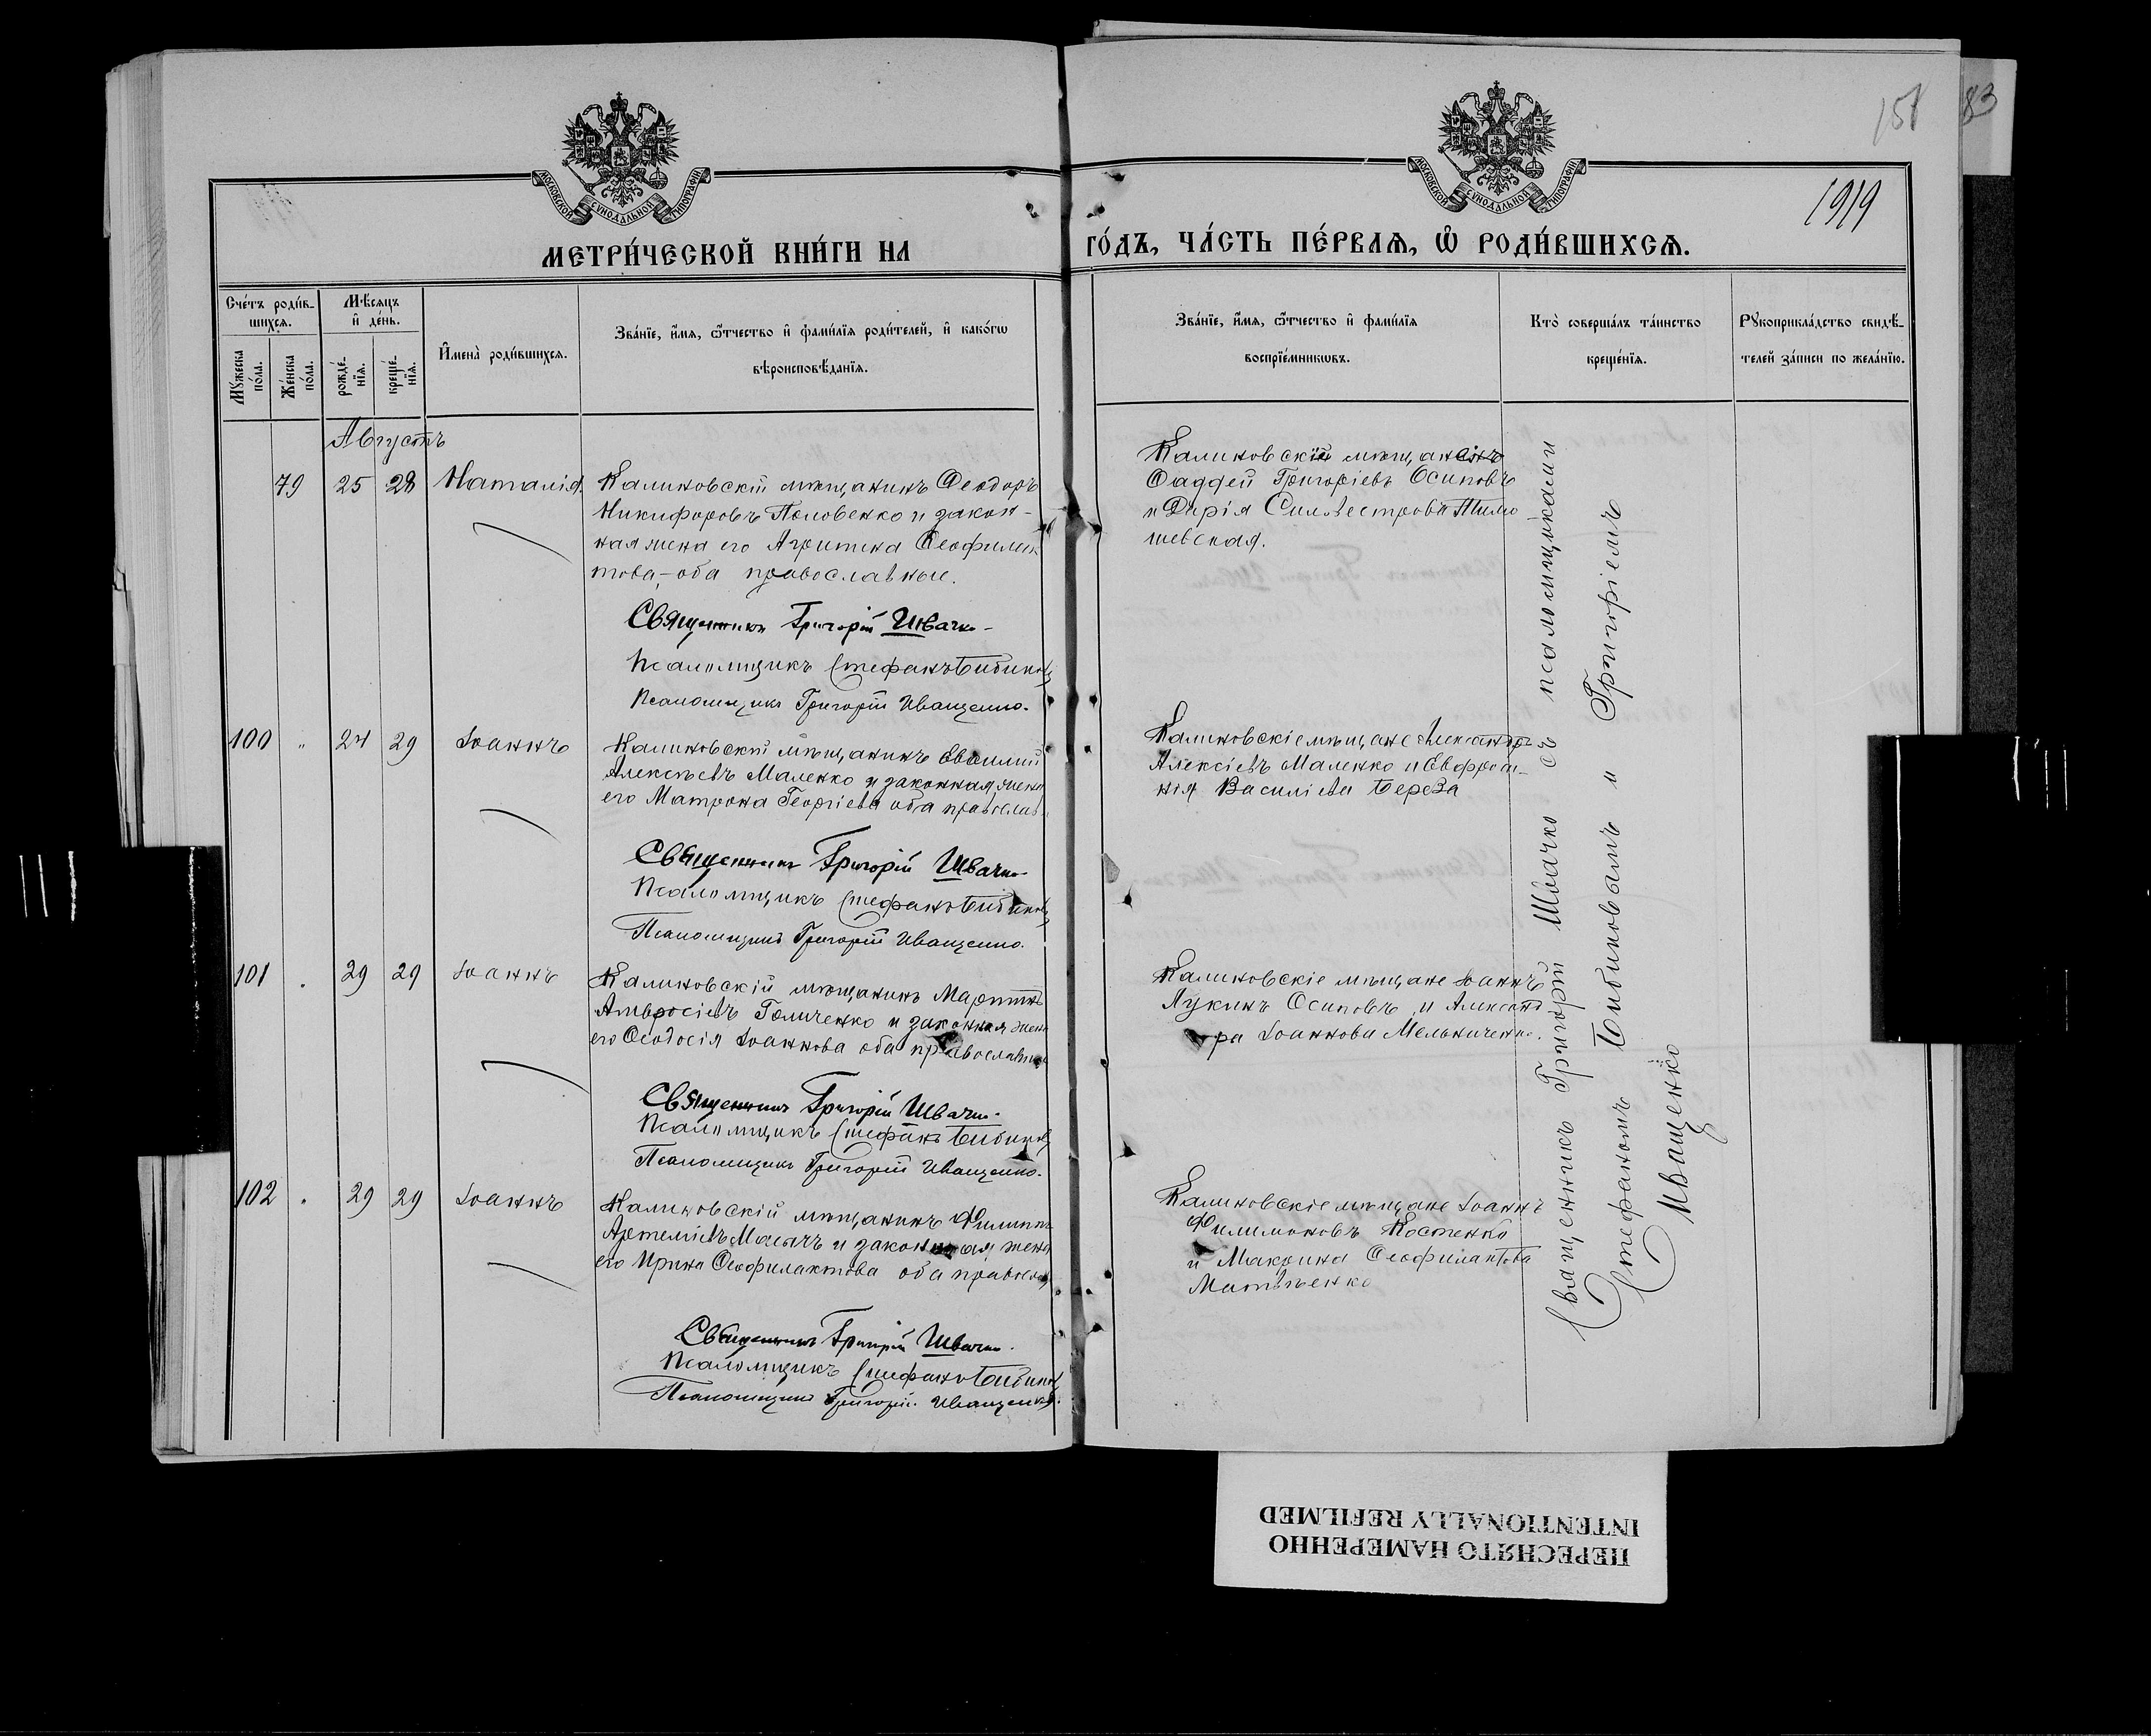 151
83
1919
МОСКОВСКОЙ СУНОДАЛЬНОЙ ТИПОГРАФІИ
МОСКОВСКОЙ СУНОДАЛЬНОЙ ТИПОГРАФІИ
МЕТРИ́ЧЕСКОЙ КНИ́ГИ НА
ГО́ДЪ, ЧА́СТЬ ПЕ́РВАѦ, Ѿ РОДИ́ВШИХСѦ.
Сче́тъ роди́в-
шихсѧ.
Мꙋжеска по́ла.
Же́нска по́ла.
Мѣ́сѧцъ
и҆ де́нь.
рожде́-
нїѧ.
креще́-
нїѧ.
И҆мена̀ роди́вшихсѧ.
Зва́нїе, и҆́мѧ, ѻ҆́тчество и҆ фами́лїѧ роди́телей, и҆ како́гѡ
вѣроисповѣ́данїѧ.
Зва́нїе, и҆́мѧ, ѻ҆́тчество и҆ фами́лїѧ
воспрїе́мникѡвъ.
Кто̀ соверша́лъ та́инство
креще́нїѧ.
Рꙋкоприкла́дство свидѣ́-
телей за́писи по жела́нїю.
Августъ
79 25 28 Наталія
Калиновскій мѣщанинъ Ѳеодоръ
Никифоровъ Половенко и закон-
ная жена его Агрипина Ѳеофилак
това,- оба православные.
Священникъ Григорій Швачко
Псаломщикъ Стефанъ Бибиковъ
Псаломщикъ Григорій Иващенко.
Калиновскій мѣщанинъ
Ѳаддей Григоріевъ Осиповъ
и Дарія Силвестрова
шевская.
100 " 24 29 Іоаннъ
Калиновскій мѣщанинъ
Алексѣевъ Маленко и законная жена
его Матрона Георгіева оба православ
Священникъ Григорій Швачко
Псаломщикъ Стефанъ Бибиковъ
Псаломщикъ Григорій Иващенко.
Калиновскіе мѣщане Александръ
Алексіевъ Маленко и Евфроси-
нія Василіева Береза
101 " 29 29 Іоаннъ
Калиновскій мѣщанинъ Мартинъ
Амвросіевъ Голиченко и законная жена
его Ѳеодосія Іоаннова оба православные
Священникъ Григорій Швачко
Псаломщикъ Стефанъ Бибиковъ
Псаломщикъ Григорій Иващенко.
Калиновскіе мѣщане Іоаннъ
Лукинъ Осиповъ и Александ
ра Іоаннова Мельниченко.
102 " 29 29 Іоаннъ
Калиновскій мѣщанинъ Филиппъ
Артеміевъ и законная жена
его Ирина Ѳеофилактова оба православ
Священникъ Григорій Швачко.
Псаломщикъ Стефанъ Бибиковъ
Псаломщикъ Григорій Иващенко.
Калиновскіе мѣщане Іоаннъ
Филимоновъ Костенко
и Макрина Ѳеофилактова
Матвѣенко
Священникъ Григорій Швачко съ псаломщиками
Стефаномъ Бибиковымъ и Григоріемъ
Иващенко
ПЕРЕСНЯТО НАМЕРЕННО
INTENTIONALLY REFILMED